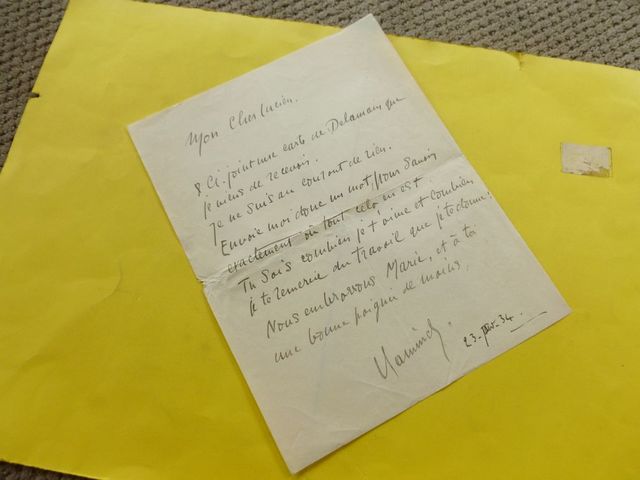 Mon Cher Lucien.
Ci-joint une carte de Delamain que
je viens de recevoir.
Je ne suis au courant de rien.
Envoie moi donc un mot pour savoir
exactement où tout cela en est.
Tu sais combien je t'aime et combien
je te remercie du travail que je te donne.
Nous embrassons Marie, et à toi
une bonne poignée de mains,
23 34